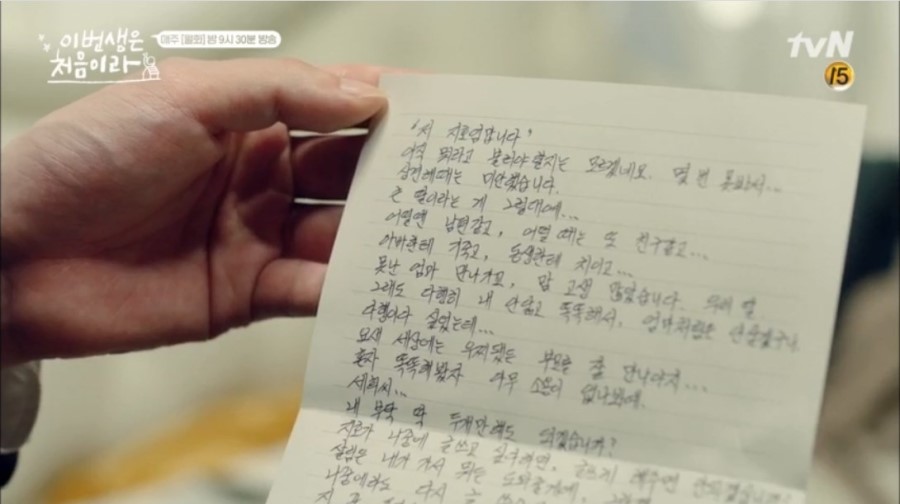 이번생은
처음이라
매주 [월화] 밤 9시 30분 방송
tvN
15
"지 지호엄맙니다"
아직 뭐라고 불러야 할지는 모르겠네요. 몇 번 못봐서...
상견례때는 미안했습니다.
큰 딸이라는 게 그렇대예...
어떨땐 남편같고, 어떨 때는 또 친구같고...
아바한테 기죽고, 동생한테 치이고...
못난 엄마 만나가꼬, 맘 고생 많았습니다. 우리 딸
그래도 다행히 내 안닮고 똑똑해서, 엄마처럼은 안살겠구나
다행이다 싶었는데...
요새 세상에는 우찌됐든 부모를 잘 만나야지...
혼자 똑똑해봤자 아무 소용이 없나봐예.
세희씨...
내 부탁 딱 두개만 해도 되겠습니까?
지호가 나중에 글쓰고 싶다하면, 글쓰게 해주면 안되겠습니까?
살림은 내가 가서 뭐든 도와줄거니까
나중에라도 다시 글